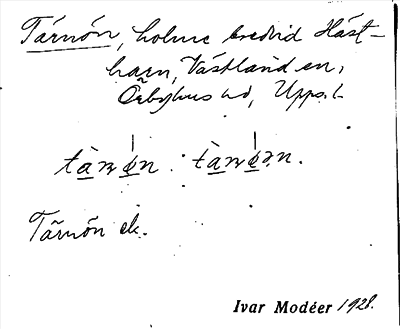 Tärnön, holme bredvid Häst-
harn, Västland sn,
Örbyhus hd, Upps. l.
tà̱rnö̱n . tà̱rnö̱ən.
Tärnön ek.
Ivar Modéer 1928.